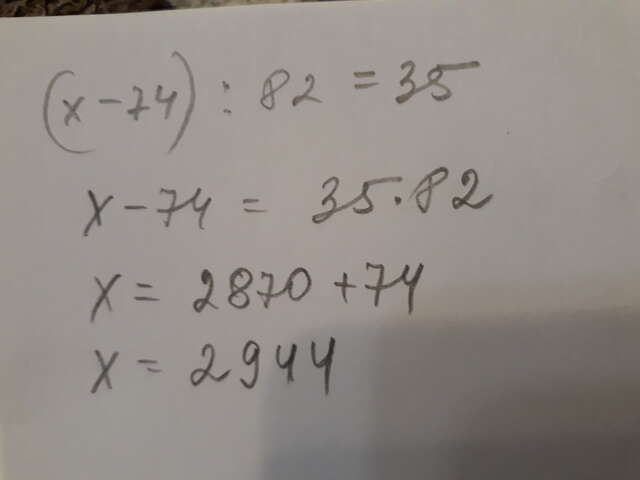 (x-74) : 82 = 35
x-74 = 35.82
x = 2870 + 74
x = 2944